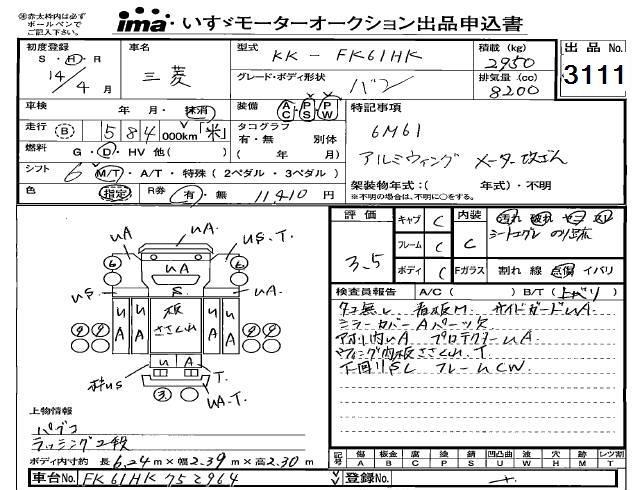 ㊟赤太枠内は必ず
ボールペンで
ご記入下さい。
ima いすゞモーターオークション出品申込書
初度登録 車名 型式 KK-FK61HK 積載 (kg) 2950 出品No.
S・H・R 14/4 月 三菱 グレード・ボディ形状 バン 排気量 (cc) 8200 3111
車検 年 月・抹消 装備 AC PS PW 特記事項
走行 (B) 584 000km 「米」 タコグラフ 6M61
有・無 別体
燃料 G・D・HV 他( ) ( 年 月) アルミウィング メーター改ざん
シフト 6 M/T・A/T・特殊(2ペダル・3ペダル)
架装物年式:( 年式)・不明
色 指定 R券 有・無 11,410 円 ※不明の場合は、不明に○をする。
評価 3.5
キャブ C 内装 C 汚れ 破れ
フレーム C シートコゲレ
ボディ C Fガラス 割れ 線 点傷 イバリ
検査員報告 A/C( ) B/T(上がり)
タコ無し 看板M サイドガードUA
ミラーカバーAパーツ欠
アオリ内UA プロテクターUA
ウィング内板ササクレ.T
下回りSC フレームCW
UA UA US.T
6 UA 6
US S UA
UA UA 板ササクレ UA UA
U A
枠US T
3 UA.T
上物情報
パブコ
ラッシング2段
ボディ内寸約 長 6.24m×幅 2.39m×高 2.30m
記号 傷A 板金B 腐C 塗P 錆S 凹凸曲U 波W 穴H 外M レツ割T
車台No. FK61HK 752964 登録No.